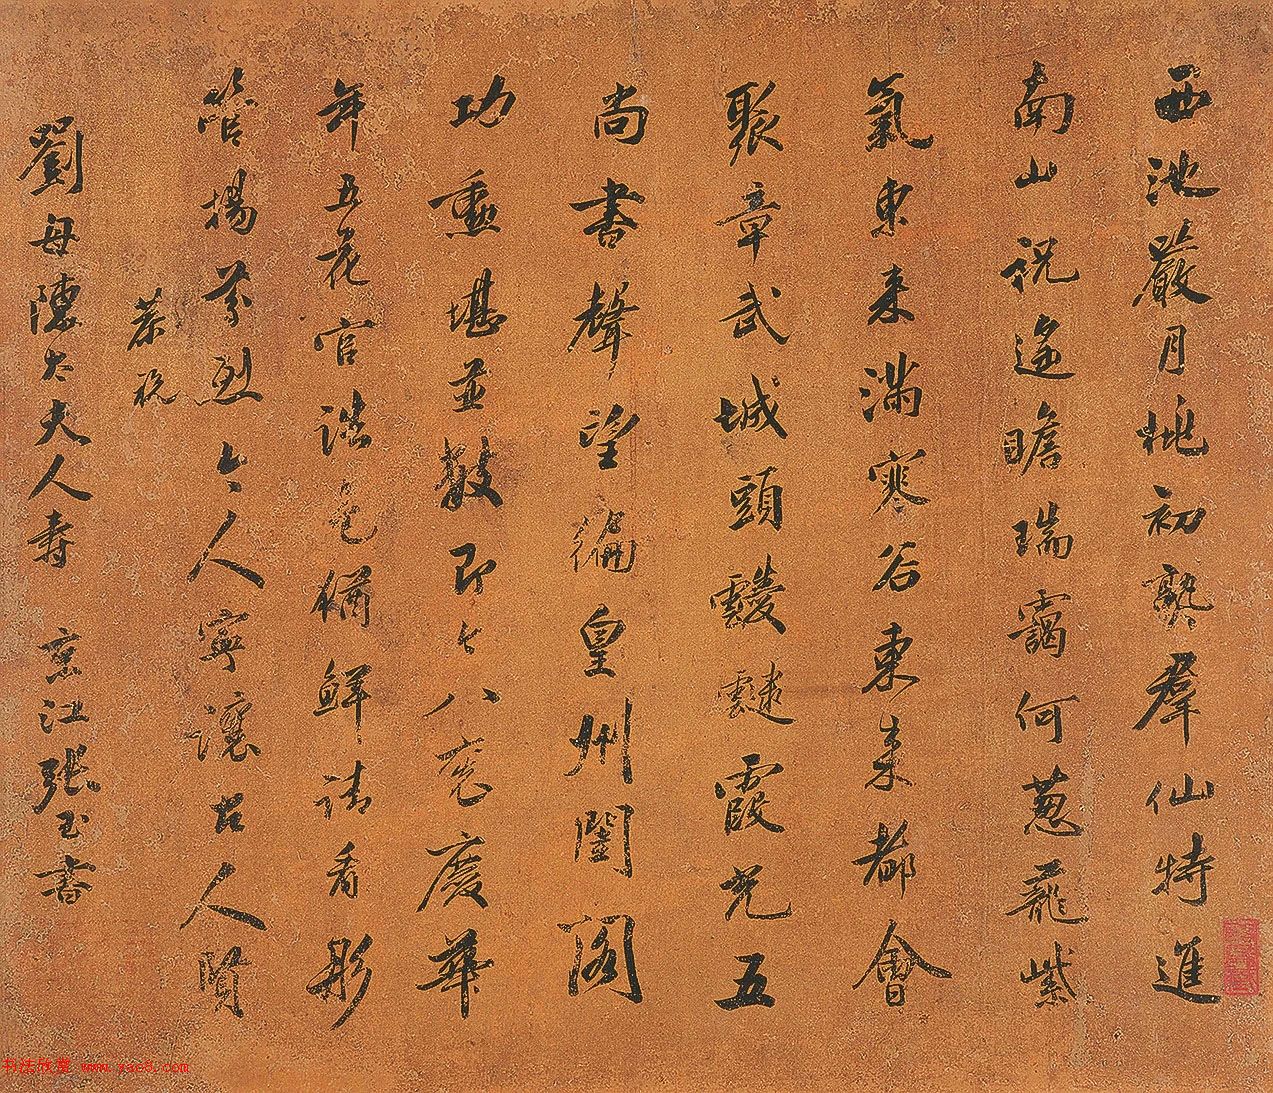 西池巖月桃初熟羣仙特進
南山祝遙瞻瑞靄何蔥蘢紫
氣東來滿寒谷東來都會
聚章武城頭靉靆霞光五
尚書聲望徧皇州閨閣
功壼堪並數即今八袠慶華
年五花官誥色猶鮮請看彤
管揚芬烈今人寧讓古人賢
恭祝
劉母陳太夫人壽 京江張玉書
书法欣赏 www.yac8.com